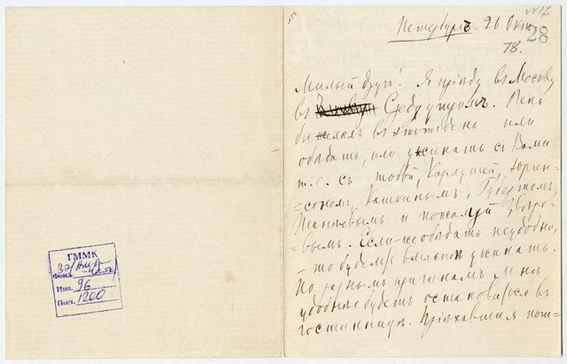 Петербургъ. 26 Окт
№ 17
28
78.
Милый другъ! Я пріѣду въ Москву
въ Среду утромъ.
бы желалъ въ этотъ день или
обѣдать, или ужинать съ Вами
т. е. съ тобой, Карлушей, Юрген-
=сономъ, Кашкинымъ, Губертомъ,
Танѣевымъ и пожалуй Звѣре-
=вымъ. Если-же обѣдать неудобно,
– то будемъ ужинать.
По разнымъ причинамъ мнѣ
удобнѣе будетъ остановиться въ
гостинницѣ. Пріѣхавши я
ГММК
Инв. 96
Пост. 1200